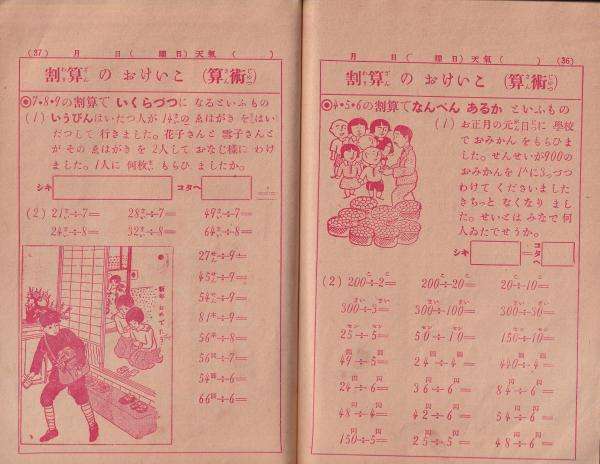 (37) 月 日( 曜日)天氣( )
割算のおけいこ (算術)
◎7・8・9の割算で いくらづつに なるといふもの
(1) いうびんはいたつ人が 14まいの ゑはがきを はい
だつして 行きました。花子さんと 雪子さんと
が その ゑはがきを 2人して おなじ樣に わけ
ました。1人に 何枚 もらひ ましたか。
シキ コタヘ
(2) 21÷7= 28÷7= 49÷7=
24÷8= 32÷8= 64÷8=
27÷9=
45÷9=
54÷9=
81÷9=
56÷8=
56÷7=
54÷6=
66÷6=
新年 おめでたう
月 日( 曜日)天氣( ) (36)
割算のおけいこ (算術)
◎4・5・6の割算でなんべん あるか といふもの
(1) お正月の元日に 學校
で おみかんを もらひま
した。せんせいが900の
おみかんを 1人に3つづつ
わけて くださいました
きちっと なくなり まし
た。せいとは みなで 何
人ゐたでせうか。
シキ = コタヘ
(2) 200÷2= 200÷20= 20÷10=
300÷3= 300÷100= 300÷30=
25÷5= 50÷10= 150÷10=
49÷5= 24÷4= 440÷4=
24÷6= 36÷6= 84÷6=
48÷4= 42÷6= 54÷6=
150÷5= 25÷5= 48÷6=